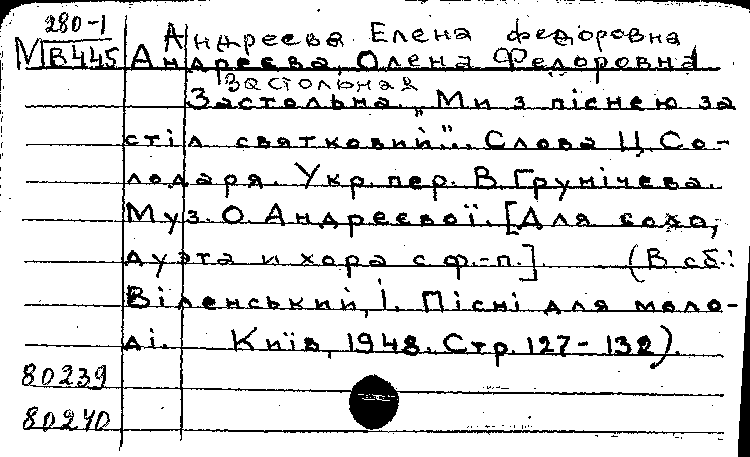 280-1
Андреева Елена Федоровна
М В445 Андреєва, Олена Федоровна
Застольная
Застольна. „Ми з піснею за
стіл святковий"... Слова Ц. Со-
лодаря. Укр. пер. В. Грунічева.
Муз. О. Андреєвої. [Для соло,
дуэта и хора с ф.-п.] (В сб.:
Віленський, І. Пісні для моло-
ді. Київ, 1948. Стр. 127-132).
80239
80240